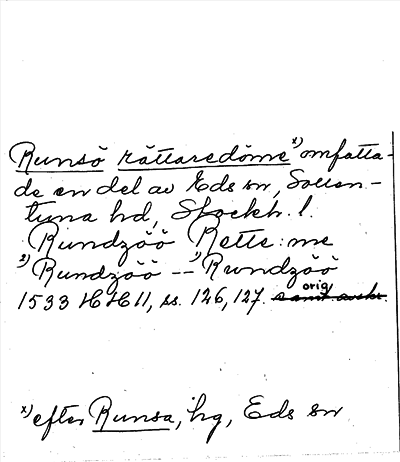 Runsö rättaredöme x) omfatta-
de en del av Eds sn, Sollen-
tuna hd, Stockh. l.
Rundzöö Rette:me
x) Rundzöö -- x) Rundzöö
1533 HH 11, ss. 126, 127. orig samt avskr.
x) efter Runsa, hg, Eds sn